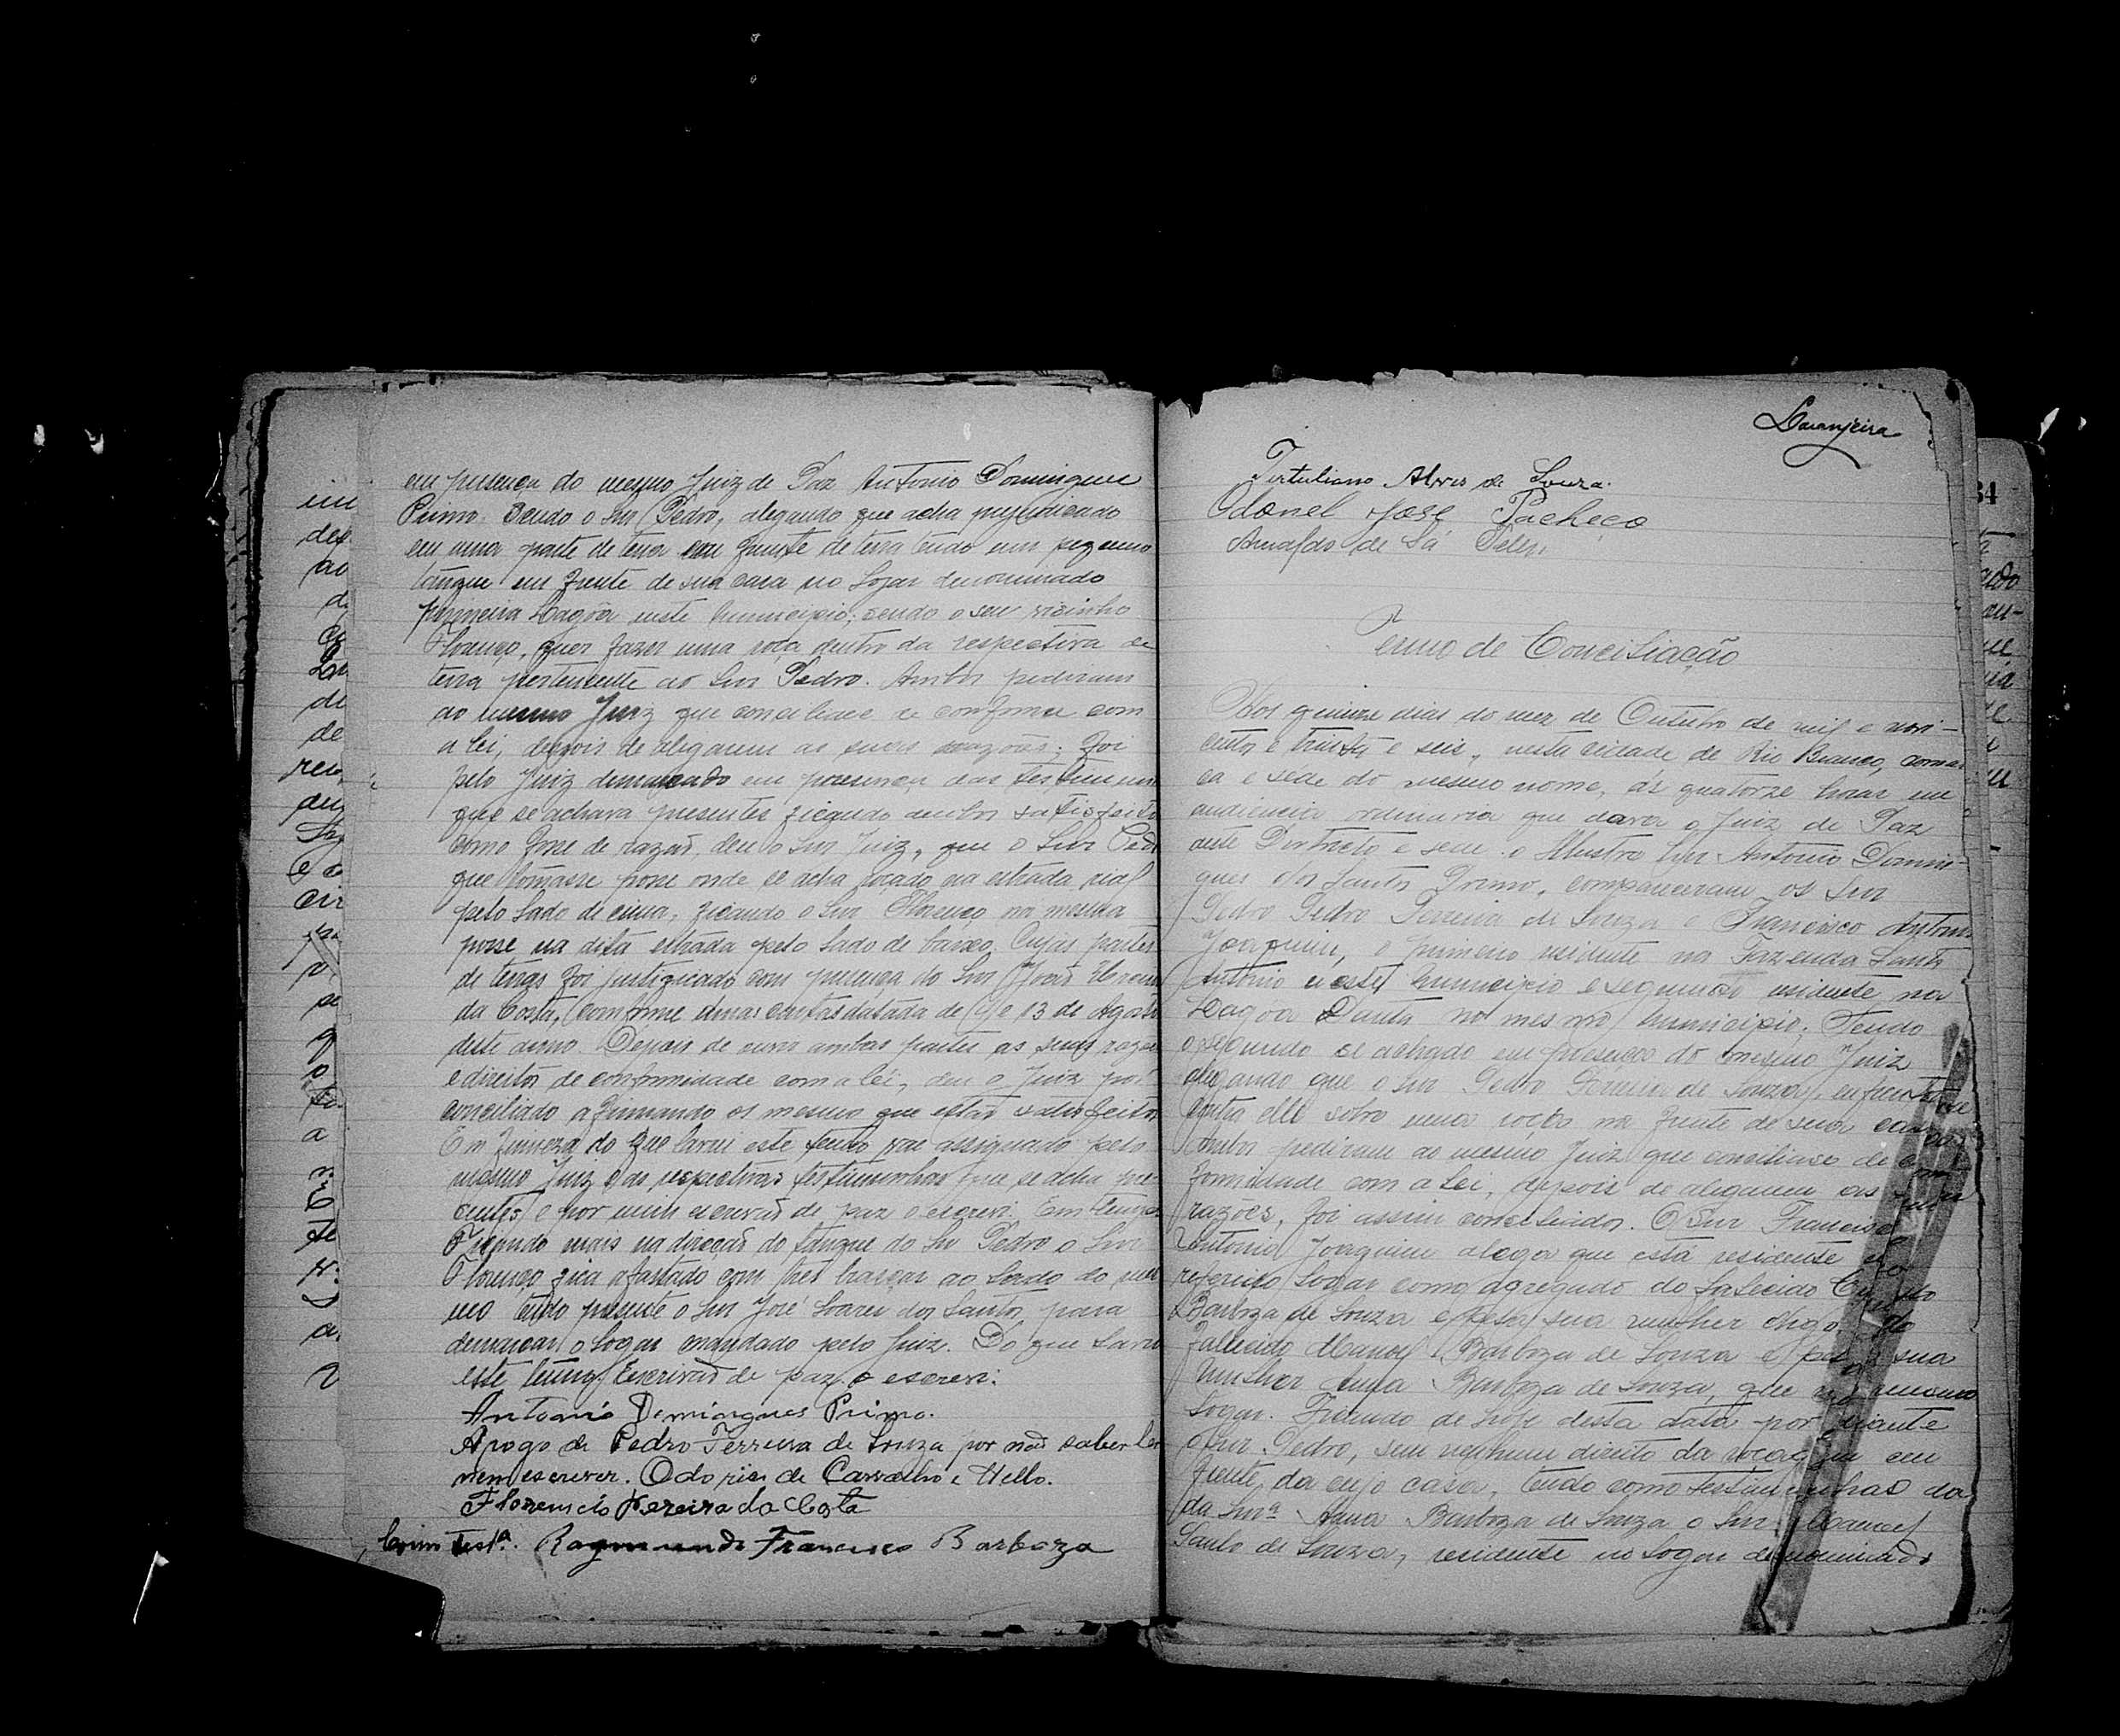 em presença do mesmo Juiz de Paz Antonio Domingues
Primo. Sendo o Snr Pedro, alegando que acha prejudicado
em uma parte de terra em frente de terra tendo um pequeno
tanque em frente de sua casa no logar denominado
primeira Lagôa neste municipio; sendo o seu visinho
Florenço, quer fazer uma roça dentro da respectiva
terra pertencente ao Snr Pedro. Ambos pediram
ao mesmo Juiz que conciliace de conforme com
a lei, depois de aligarem as suas razões; foi
pelo Juiz demarcado em presença das testemun
que se achava presentes ficando ambos satisfeito
como fosse de razaõ, deu o Snr Juiz, que o Snr Ped
que tomasse posse onde se acha roçado na estrada rial
pelo lado de cima, ficando o Snr Florenço na mesma
posse na dita estrada pelo lado de baixo. Cujas partes
de terras foi justificado com presença do Snr
da Costa, conforme umas cartas datada de 9 e 13 de Agost
deste anno. Depois de ouvir ambas partes as suas razoe
e direitos de conformidade com a lei, deu o Juiz por
conciliado afirmando os mesmo que estão satisfeitos
Em firmeza do que lavrei este termo vae assignado pelo
mesmo Juiz e as respectivas testimunhas que se acha pre
centes e por mim escrivaõ de paz o escrevi. Em tempo
Ficando mais na direcaõ do tanque do Snr Pedro o Snr
Florenço fica afastado com tres braças ao lado do mes
mo tendo presente o Snr José Soares dos Santos, para
demarcar o logar mandado pelo Juiz. Do que lavro
este termo Escrivaõ de paz o escrevi:
Antonio Domingues Primo.
A rogo de Pedro Ferreira de Souza por naõ saber ler
nem escrever. Odorico de Carvalho e Mello.
Florencio Pereira da Costa
Como testª. Raymundo Francisco Barboza
Laranjeira
Tertuliano Alves de Souza.
Odonel José Pacheco
Arnaldo de Sá Teles
Termo de Conciliação
Aos quinze dias do mez de Outubro de mil e novi-
centos e trinta e seis, nesta cidade de Rio Branco, comar
ca e sede do mesmo nome, ás quatorze horas em
audiencia ordinaria que dava o Juiz de Paz
deste Districto e sede o Illustre Snr Antonio Domin-
gues dos Santos Primo, compareceram os Snr
Pedro Pedro Ferreira de Souza e Francisco Antonio
Joaquim, o primeiro residente na Fazenda Santo
Antonio neste municipio e segundo residente na
Lagoa Danta no mesmo municipio. Tendo
o segundo se achado em presença do mesmo Juiz
alegando que o Snr Pedro Ferreira de Souza,
contra elle sobre uma roça na frente de sua casa
ambos pediram ao mesmo Juiz que conciliace de con
formidade com a lei, depois de alegarem as suas
razões, foi assim conciliados. O Snr Francisco
Antonio Joaquim alega que está residente no
referido logar como agregado do falecido
Barboza de Souza e pela sua mulher digo do
fallecido Manoel Barboza de Souza e pela sua
mulher Anna Barboza de Souza, que no mesmo
logar. Ficando de hoje desta data por diante
o Snr. Pedro, sem nenhum direito da roçagem em
frente da cujo casa, tendo como testimunhas da
da Snrª Anna Barboza de Souza o Snr. Manoel
Paulo de Souza, residente no logar denominado